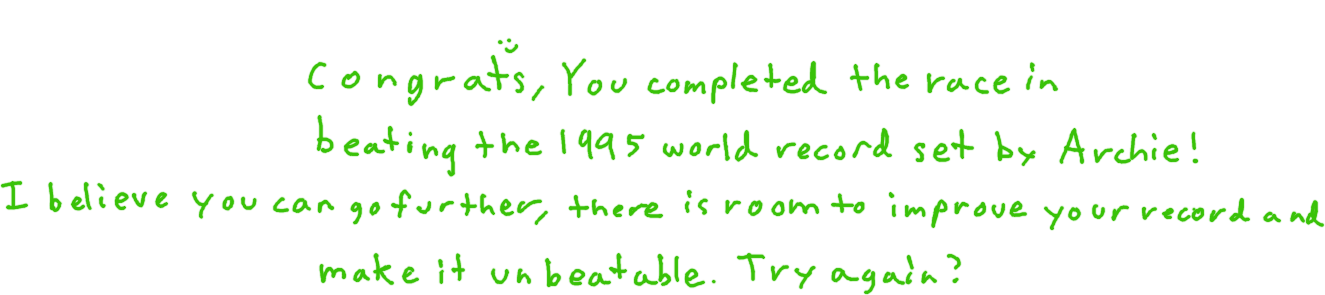 Congrats, You completed the race in
beating the 1995 world record set by Archie!
I believe you can go further, there is room to improve your record and
make it unbeatable. Try again?